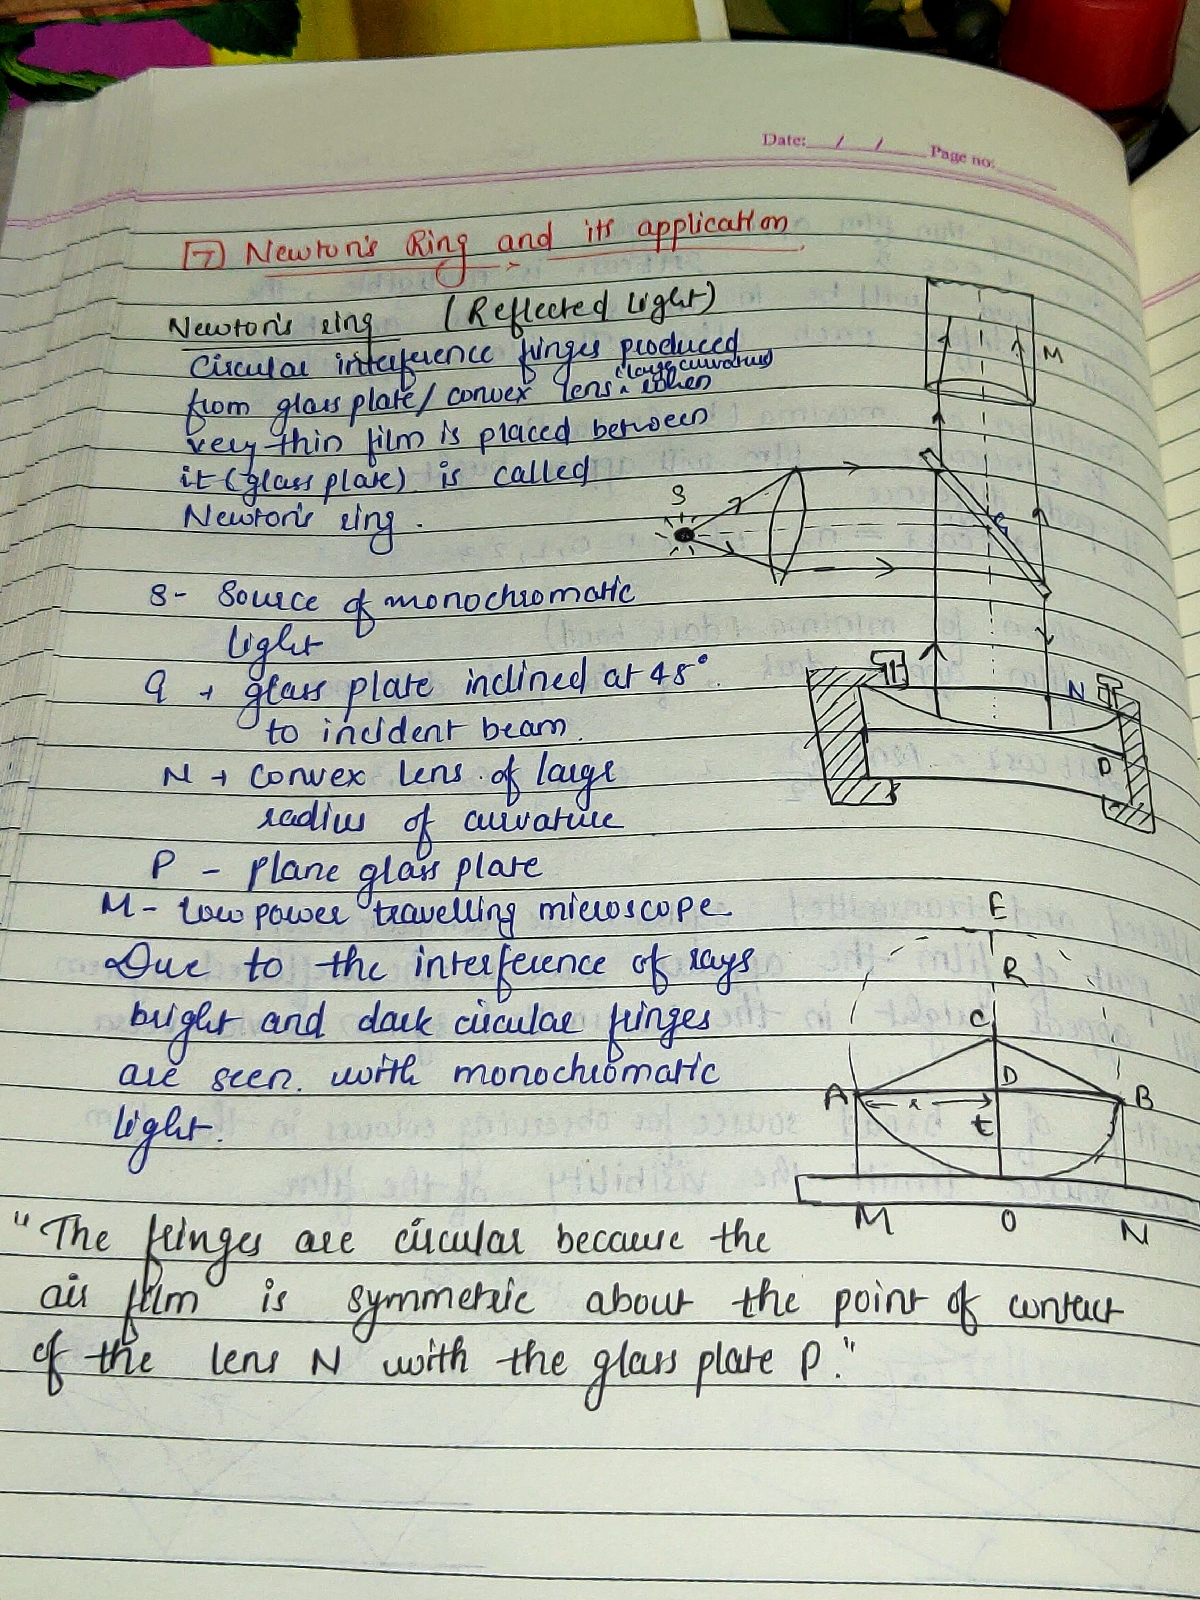 Date: / / Page no:
7) Newton's Ring and its application
Newton's ring (Reflected light)
Circular interference fringes produced
from glass plate/ convex lens (large curvature) when
very thin film is placed between
it (glass plate) is called
Newton's ring.
S
M
G
N
P
S- Source of monochromatic
light
G → glass plate inclined at 45°
to incident beam.
N → convex lens of large
radius of curvature
P - plane glass plate
M- low power travelling microscope
Due to the interference of rays
bright and dark circular fringes
are seen. with monochromatic
light.
E
R
C
A D B
r
t
M O N
"The fringes are circular because the
air film is symmetric about the point of contact
of the lens N with the glass plate P."